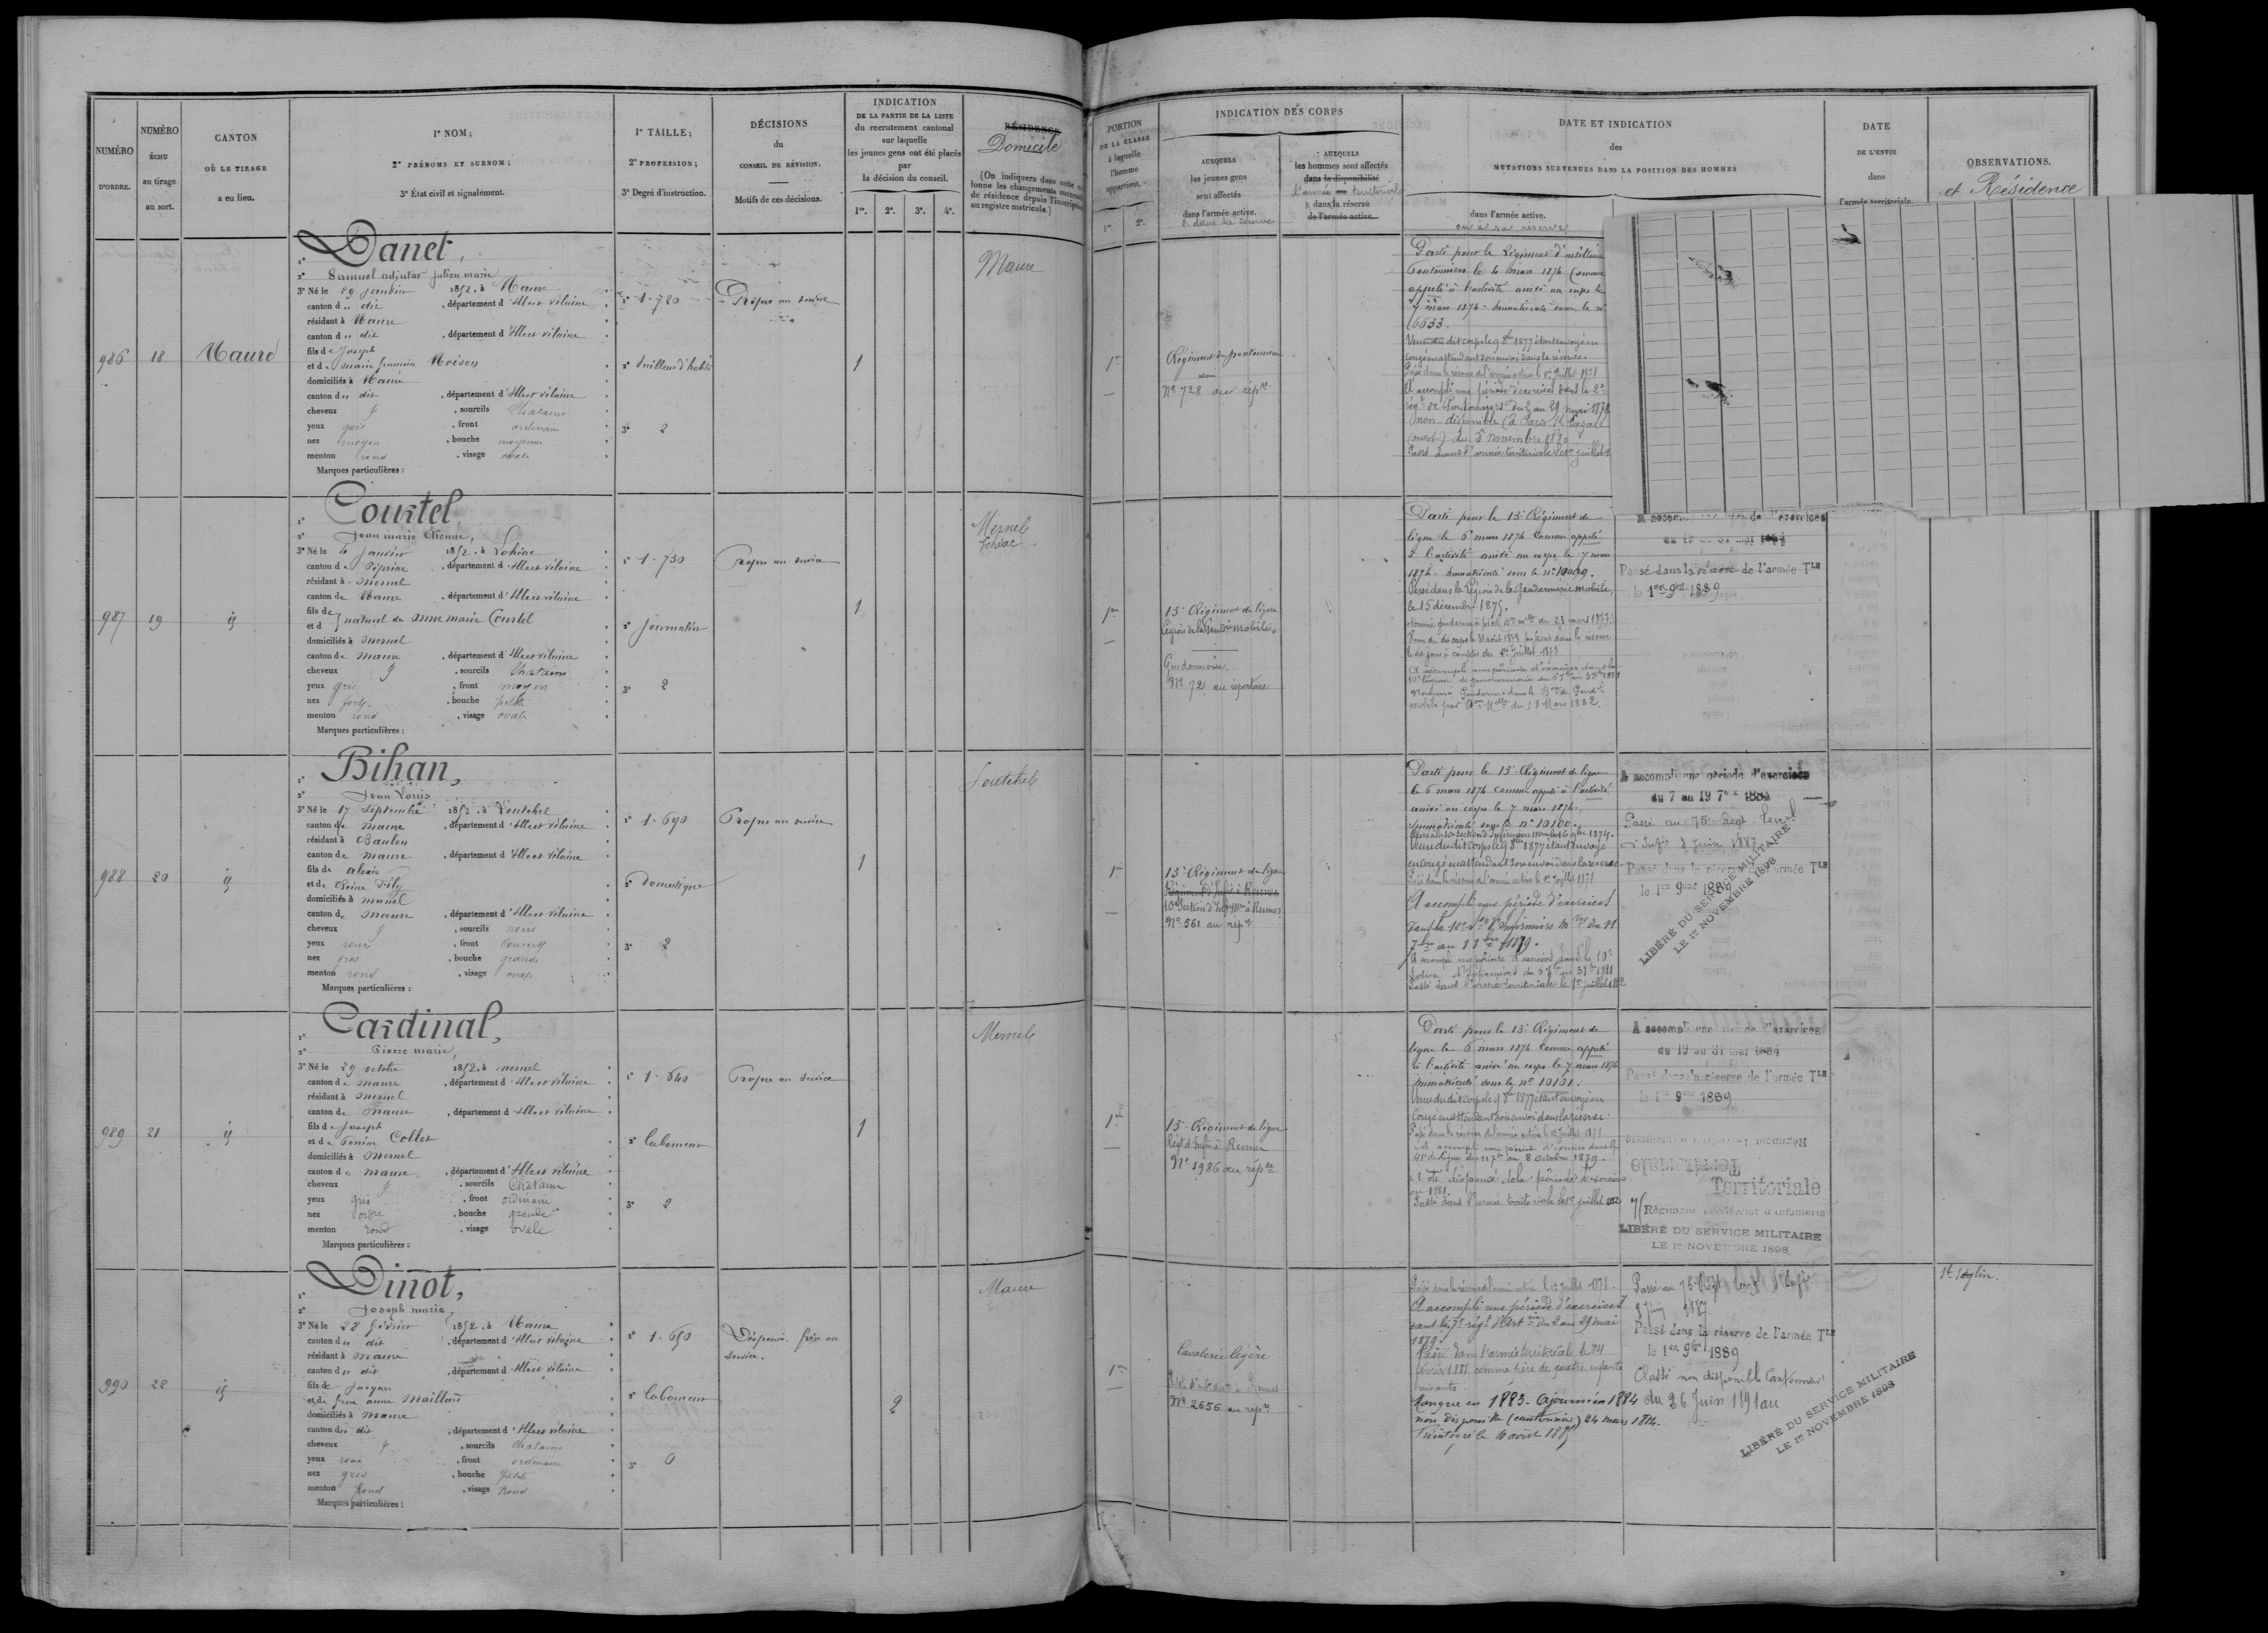 NUMÉRO
D'ORDRE.
NUMÉRO
ÉCHU
au tirage
au sort.
CANTON
OÙ LE TIRAGE
a eu lieu.
1° NOM;
2° PRÉNOMS ET SURNOM;
3° État civil et signalement.
1° TAILLE;
2° PROFESSION;
3° Degré d'instruction.
DÉCISIONS
du
CONSEIL DE RÉVISION.
Motifs de ces décisions.
INDICATION
DE LA PARTIE DE LA LISTE
du recrutement cantonal
sur laquelle
les jeunes gens ont été placés
par
la décision du conseil.
1re. 2e. 3e. 4e.
RÉSIDENCE
Domicile
(On indiquera dans cette
lonne les changements
de résidence depuis l'inscription
au registre matricule.)
PORTION
DE LA CLASSE
à laquelle
l'homme
appartient.
1re. 2e.
INDICATION DES CORPS
AUXQUELS
les jeunes gens
sont affectés
dans l'armée active.
AUXQUELS
les hommes sont affectés
dans la disponibilité
l'armée territoriale
dans la réserve
de l'armée active.
DATE ET INDICATION
des
MUTATIONS SURVENUES DANS LA POSITION DES HOMMES
dans l'armée active.
ou à sa reserve
DATE
DE L'ENVOI
dans
l'armée territoriale
OBSERVATIONS.
et Résidence
986 18 Maure
1° Danet,
2° Samuel adjutor Julien marie
3° Né le 29 janvier 1852, à Maure
canton du dit, département d'Illeet vilaine
résidant à Maure
canton du dit, département d'Illeet vilaine
fils de Joseph
et de marie françoise Moison
domiciliés à Maure
canton du dit, département d'Illeet vilaine
cheveux , sourcils Chatains
yeux gris, front ordinaire
nez moyen, bouche moyenne
menton rond, visage ovale
Marques particulières :
1° 1.720
2° tailleur d'habits
3° 2
Propre au service
1
Maure
1re
Régiment de pontonniers
No 728 au répre
Parti pour le Régiment d'artillerie
Pontonniers le 4 mars 1874 Comme
appelé à l'activité arrivé au corps le
7 mars 1874 immatriculé sous le no
6633.
Venu du dit corps le 9 8bre 1877 étant envoyé en
congé en attendant son envoi dans la réserve.
Passé dans la réserve de l'armée active le 1er juillet
A accompli une période d'exercices dans le 2e
régt de Pontonniers du 2 au 29 mai 1879
non disponible (à Paris St Lazare
(ouest) du 5 novembre
Passé dans l'armée territoriale le 1er juillet
987 19 ij
1° Courtel,
2° Jean marie Etienne,
3° Né le 4 Janvier 1852, à Lohéac
canton de Pipriac, département d'Illeet vilaine
résidant à mernel
canton de Maure, département d'Illeet vilaine
fils de
et d
naturel de anne marie Courtel
domiciliés à mernel
canton de maure, département d'Illeet vilaine
cheveux , sourcils Chatains
yeux gris, front moyen
nez fort, bouche petite
menton rond, visage ovale
Marques particulières :
1° 1.730
2° Journalier
3° 2
Propre au service
1
Mernel
Lohéac
1re
13e Régiment de ligne
Légion de la Gendrie mobile,
Gendarmerie
No 72 au répertoire
Parti pour le 13e Régiment de
ligne le 6 mars 1874 Comme appelé
à l'activité arrivé au corps le 7 mars
1874 immatriculé sous le no 10099.
Passé dans la Légion de la Gendarmerie mobile,
le 15 décembre 1875.
Nommé gendarme à pied du 23 mars 1877.
le dit jour à compter du 1er juillet
A accompli une période d'exercices dans la
10e Légion de gendarmerie du
Nommé Gendarme dans le Bon de Gendie
mobile par du 18 Mars 1882.
du 19 au 31 mai 1884
Passé dans la réserve de l'armée Tle
le 1er 9bre 1889
988 20 ij
1° Bihan,
2° Jean Louis
3° Né le 17 Septembre 1852, à Loutehel
canton de maure, département d'Illeet vilaine
résidant à Baulon
canton de maure, département d'Illeet vilaine
fils de alexis
et de Reine
domiciliés à
canton de maure, département d'Illeet vilaine
cheveux , sourcils noirs
yeux roux, front couvert
nez gros, bouche grande
menton rond, visage ovale
Marques particulières :
1° 1.690
2° Domestique
3° 2
Propre au service
1
Loutehel
1re
13e Régiment de ligne
Régiment d'Infie à Rennes
10e Section d'Infirmiers à Rennes
No 561 au répre
Parti pour le 13e Régiment de ligne
le 6 mars 1874 comme appelé à l'activité
arrivé au corps le 7 mars 1874.
immatriculé sous le no 10100.
Venu du dit corps le 9 8bre 1877 étant envoyé
en congé en attendant son envoi dans la réserve.
Passé dans la réserve de l'armée active le 1er juillet
A accompli une période d'exercices
dans la 10e son d'infirmiers mres du 11
7bre au 8bre 1879.
A accompli une période d'exercices dans la 10e
Section d'Infirmiers du
Passé dans l'armée territoriale le 1er juillet
A accompli une période d'exercices
du 7 au 19 7bre 1884
Passé au 75e Régt Territ
d'Infie 8 juin 1887
Passé dans la réserve de l'armée Tle
le 1er 9bre 1889
LIBÉRÉ DU SERVICE MILITAIRE
LE 1er NOVEMBRE 1898
989 21 ij
1° Cardinal,
2° Pierre marie,
3° Né le 29 octobre 1852, à mernel
canton de maure, département d'Illeet vilaine
résidant à Mernel
canton de Maure, département d'Illeet vilaine
fils de Joseph
et de Perrine Collet
domiciliés à Mernel
canton de maure, département d'Illeet vilaine
cheveux , sourcils Chatains
yeux gris, front ordinaire
nez ordre, bouche grande
menton rond, visage ovale
Marques particulières :
1° 1.640
2° Laboureur
3° 2
Propre au service
1
Mernel
1re
13e Régiment de ligne
Régt d'Infie à Rennes
No 1986 au répre
Parti pour le 13e Régiment de
ligne le 6 mars 1874 Comme appelé
à l'activité arrivé au corps le 7 mars 1874
immatriculé sous le no 10101.
Venu du dit corps le 9 8bre 1877 étant envoyé en
Congé en attendant son envoi dans la réserve.
Passé dans la réserve de l'armée active le 1er juillet
A accompli une période d'exercice dans le
41e de ligne du 11 7bre au 8 octobre 1879.
A été dispensé de la période d'exercices
en 1881.
Passé dans l'armée territoriale le 1er juillet
A accompli une période d'exercices
du 19 au 31 mai 1884
Passé dans la réserve de l'armée Tle
le 1er 9bre 1889
Territoriale
Régiment territorial d'infanterie
LIBÉRÉ DU SERVICE MILITAIRE
LE 1er NOVEMBRE 1898
990 22 ij
1° Dinot,
2° Joseph marie,
3° Né le 28 février 1852, à Maure
canton du dit, département d'Illeet vilaine
résidant à Maure
canton du dit, département d'Illeet vilaine
fils de Jacques
et de anne Maillard
domiciliés à Maure
canton du dit, département d'Illeet vilaine
cheveux , sourcils Chatains
yeux roux, front ordinaire
nez gros, bouche petite
menton rond, visage rond
Marques particulières :
1° 1.650
2° Laboureur
3° 0
Dispensé. frère au
service.
2
Maure
1re
Cavalerie légère
No 2656 au répre
Passé dans la réserve de l'armée active le 1er juillet
A accompli une période d'exercices
dans le 7e régt d'Artie du 2 au 29 mai
1879.
Passé dans l'armée territoriale le 24
février 1881 comme père de quatre enfants
vivants.
Manque en 1883. Ajourné en 1884
non disponible (cantonnier) 24 mars 1884.
Réintégré le 10 avril
Passé au 75e Régt territ d'Infie
8 Juin 1887
Passé dans la réserve de l'armée Tle
le 1er 9bre 1889
Classé non disponible Cantonnier
du 26 Juin 1891 au
LIBÉRÉ DU SERVICE MILITAIRE
LE 1er NOVEMBRE 1898
St Séglin.